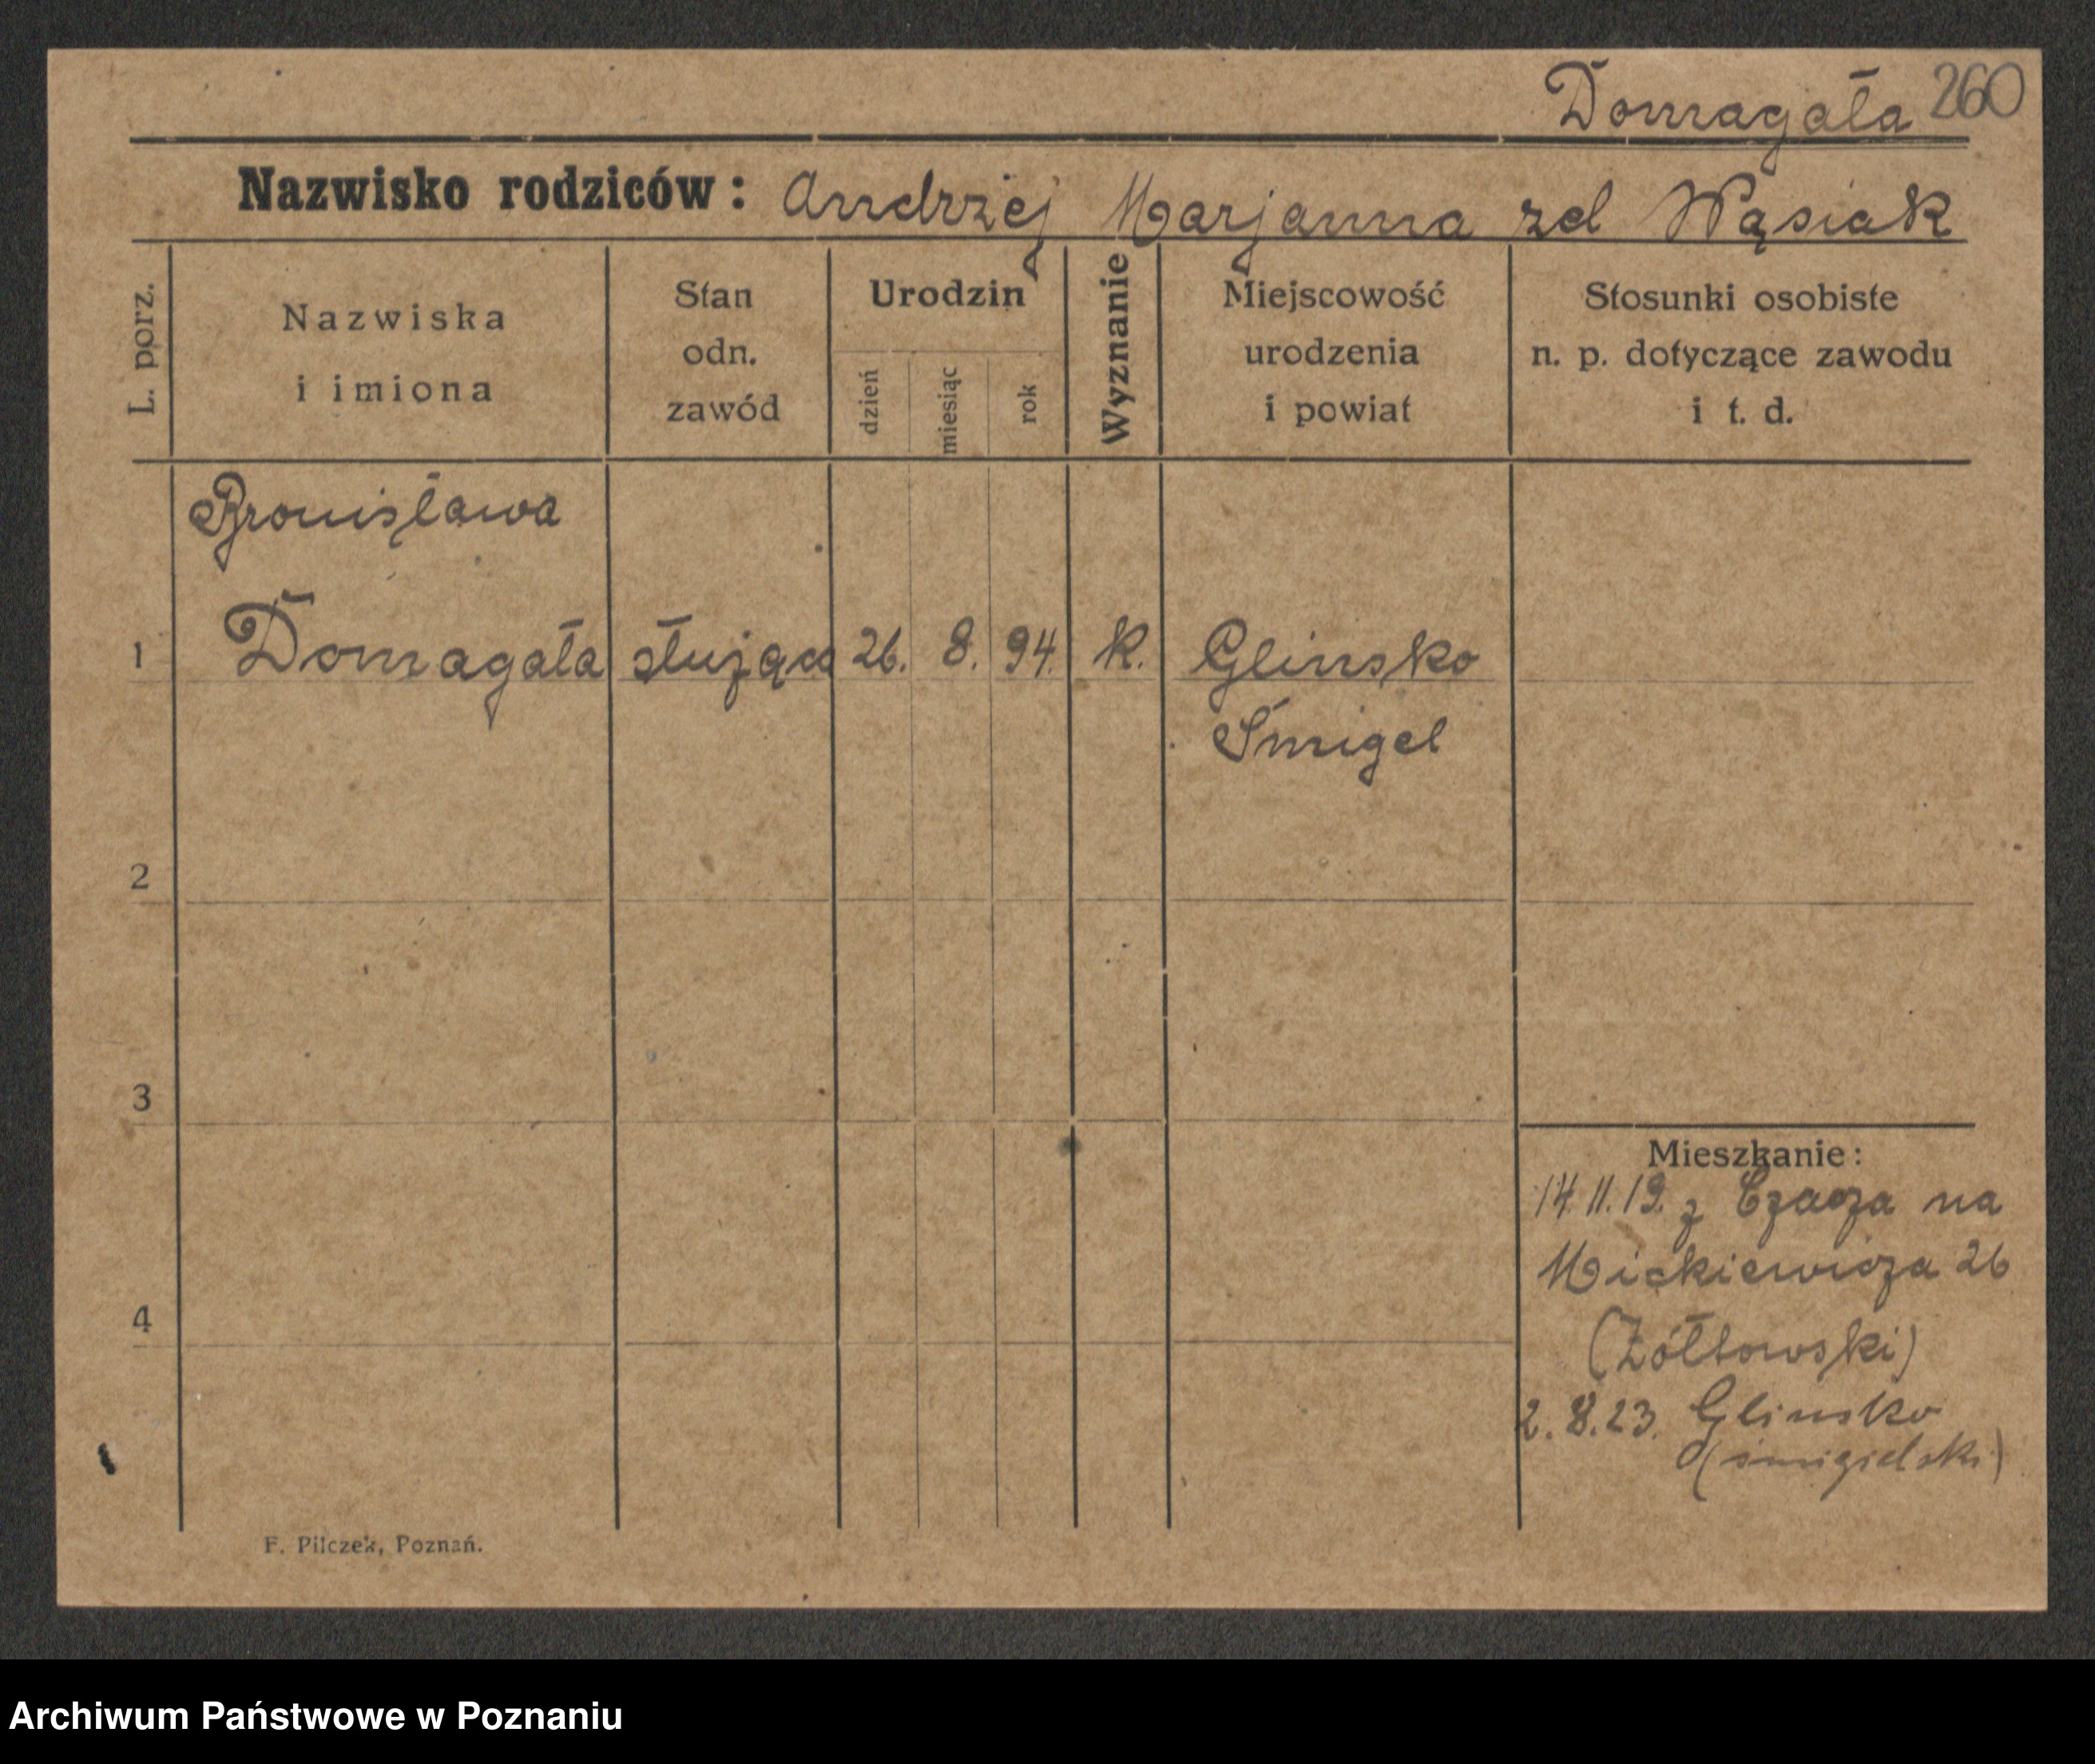 Domagała 260
Nazwisko rodziców: Andrzej Marjanna zd Wąsiak
L. porz.
Nazwiska
i imiona
Stan
odn.
zawód
Urodzin
dzień
miesiąc
rok
Wyznanie
Miejscowość
urodzenia
i powiat
Stosunki osobiste
n. p. dotyczące zawodu
i t. d.
Bronisława
1 Domagała służąca 26. 8. 94. k. Glinsko
Śmigel
2
3
Mieszkanie:
14.11.19. z Czacza na
Mickiewicza 26
4
(Żółtowski)
2.8.23. Glinsko
(śmigielski)
F. Pilczek, Poznań.
Archiwum Państwowe w Poznaniu